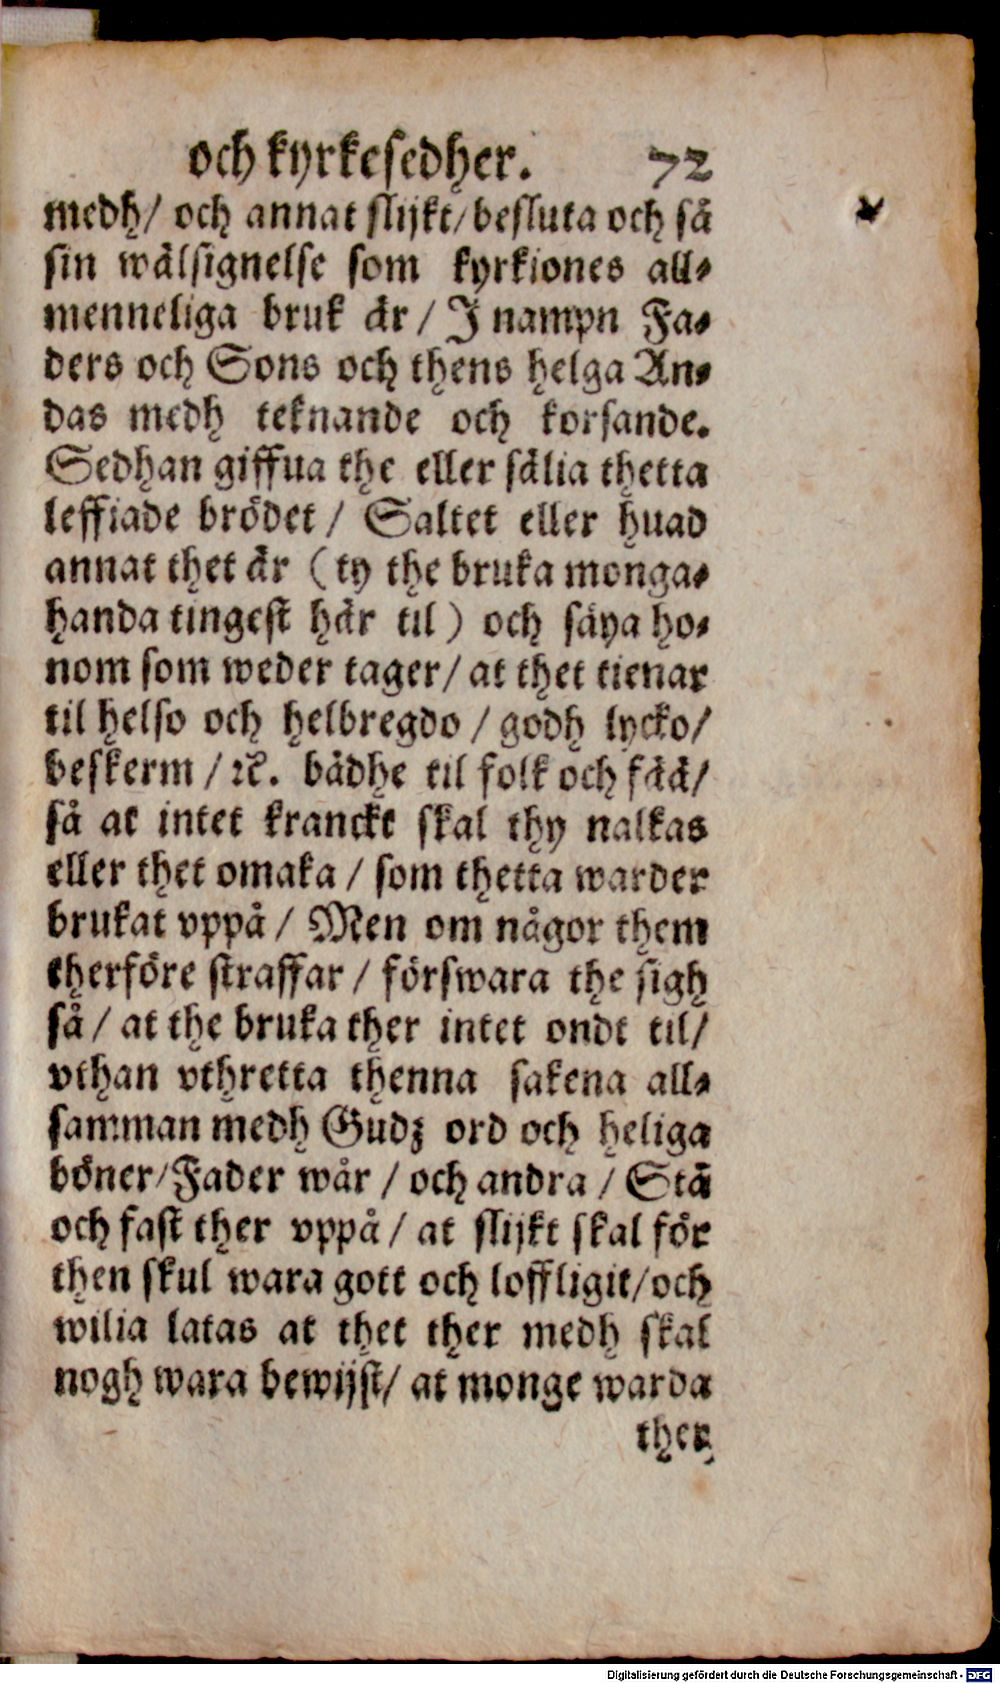 och kyrkesedher. 72
medh/ och annat slijkt/besluta och så
sin wälsignelse som kyrkiones all⸗
menneliga bruk är / J nampn Fa⸗
ders och Sons och thens helga An⸗
das medh teknande och korsande.
Sedhan giffua the eller sälia thetta
leffiade brödet / Saltet eller huad
annat thet är (ty the bruka monga⸗
handa tingest här til) och säya ho⸗
nom som weder tager/ at thet tienar
til helso och helbregdo / godh lycko/
beskerm / ꝛc. bådhe til folk och fää/
så at intet kranckt skal thy nalkas
eller thet omaka / som thetta warder
brukat vppå / Men om någor them
therföre straffar / förswara the sigh
så / at the bruka ther intet ondt til/
vthan vthretta thenna sakena all⸗
samman medh Gudz ord och heliga
böner/Fader wår / och andra / Stå
och fast ther vppå / at slijkt skal för
then skul wara gott och loffligit/och
wilia latas at thet ther medh skal
nogh wara bewijst/ at monge warda
ther
Digitalisierung gefördert durch die Deutsche Forschungsgemeinschaft - DFG